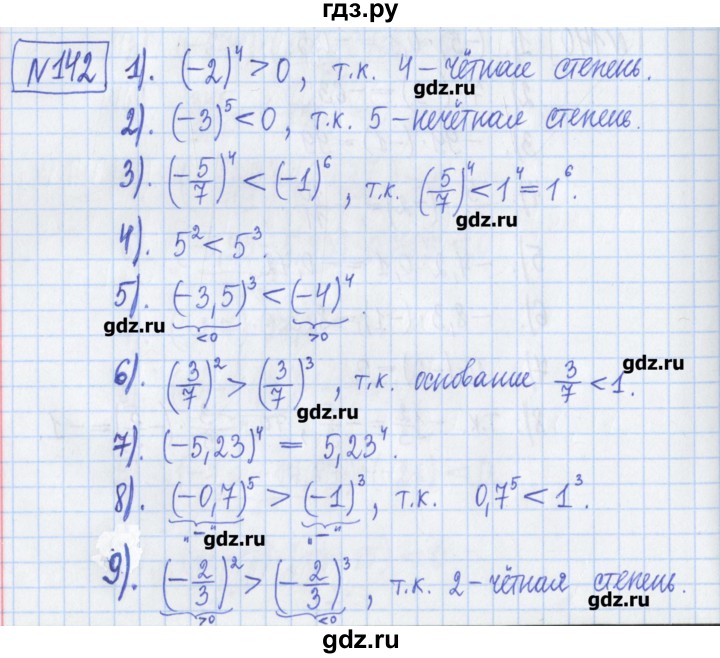 гдз.ру
№142 1). (-2)⁴ > 0, т.к. 4 – чётная степень.
gdz.ru
2). (-3)⁵ < 0, т.к. 5 – нечётная степень.
3). (-5/7)⁴ < (-1)⁶, т.к. (5/7)⁴ < 1⁴ = 1⁶.
gdz.ru
4). 5² < 5³.
5). (-3,5)³ < (-4)⁴.
gdz.ru <0 >0
6). (3/7)² > (3/7)³, т.к. основание 3/7 < 1.
gdz.ru
gdz.ru
7). (-5,23)⁴ = 5,23⁴.
8). (-0,7)⁵ > (-1)³, т.к. 0,7⁵ < 1³.
„–“ „–“
gdz.ru gdz.ru
9). (-2/3)² > (-2/3)³, т.к. 2 – чётная степень.
>0 <0 gdz.ru
gdz.ru